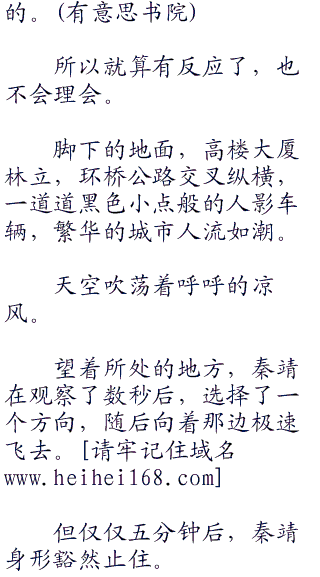 的。(有意思书院)
所以就算有反应了，也
不会理会。
脚下的地面，高楼大厦
林立，环桥公路交叉纵横，
一道道黑色小点般的人影车
辆，繁华的城市人流如潮。
天空吹荡着呼呼的凉
风。
望着所处的地方，秦靖
在观察了数秒后，选择了一
个方向，随后向着那边极速
飞去。[请牢记住域名
www.heihei168.com]
但仅仅五分钟后，秦靖
身形豁然止住。